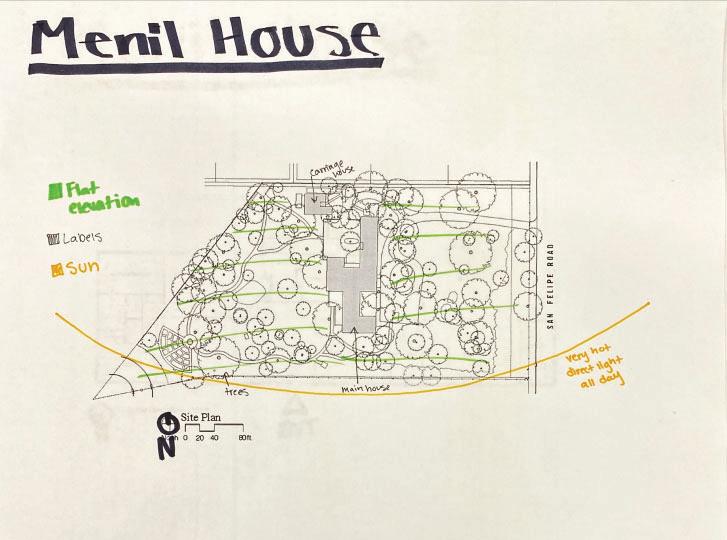 Menil House
Flat
elevation
Labels
Sun
Carriage
house
SAN FELIPE ROAD
very hot
direct light
all day
trees
main house
Site Plan
N
0 20 40 80ft.